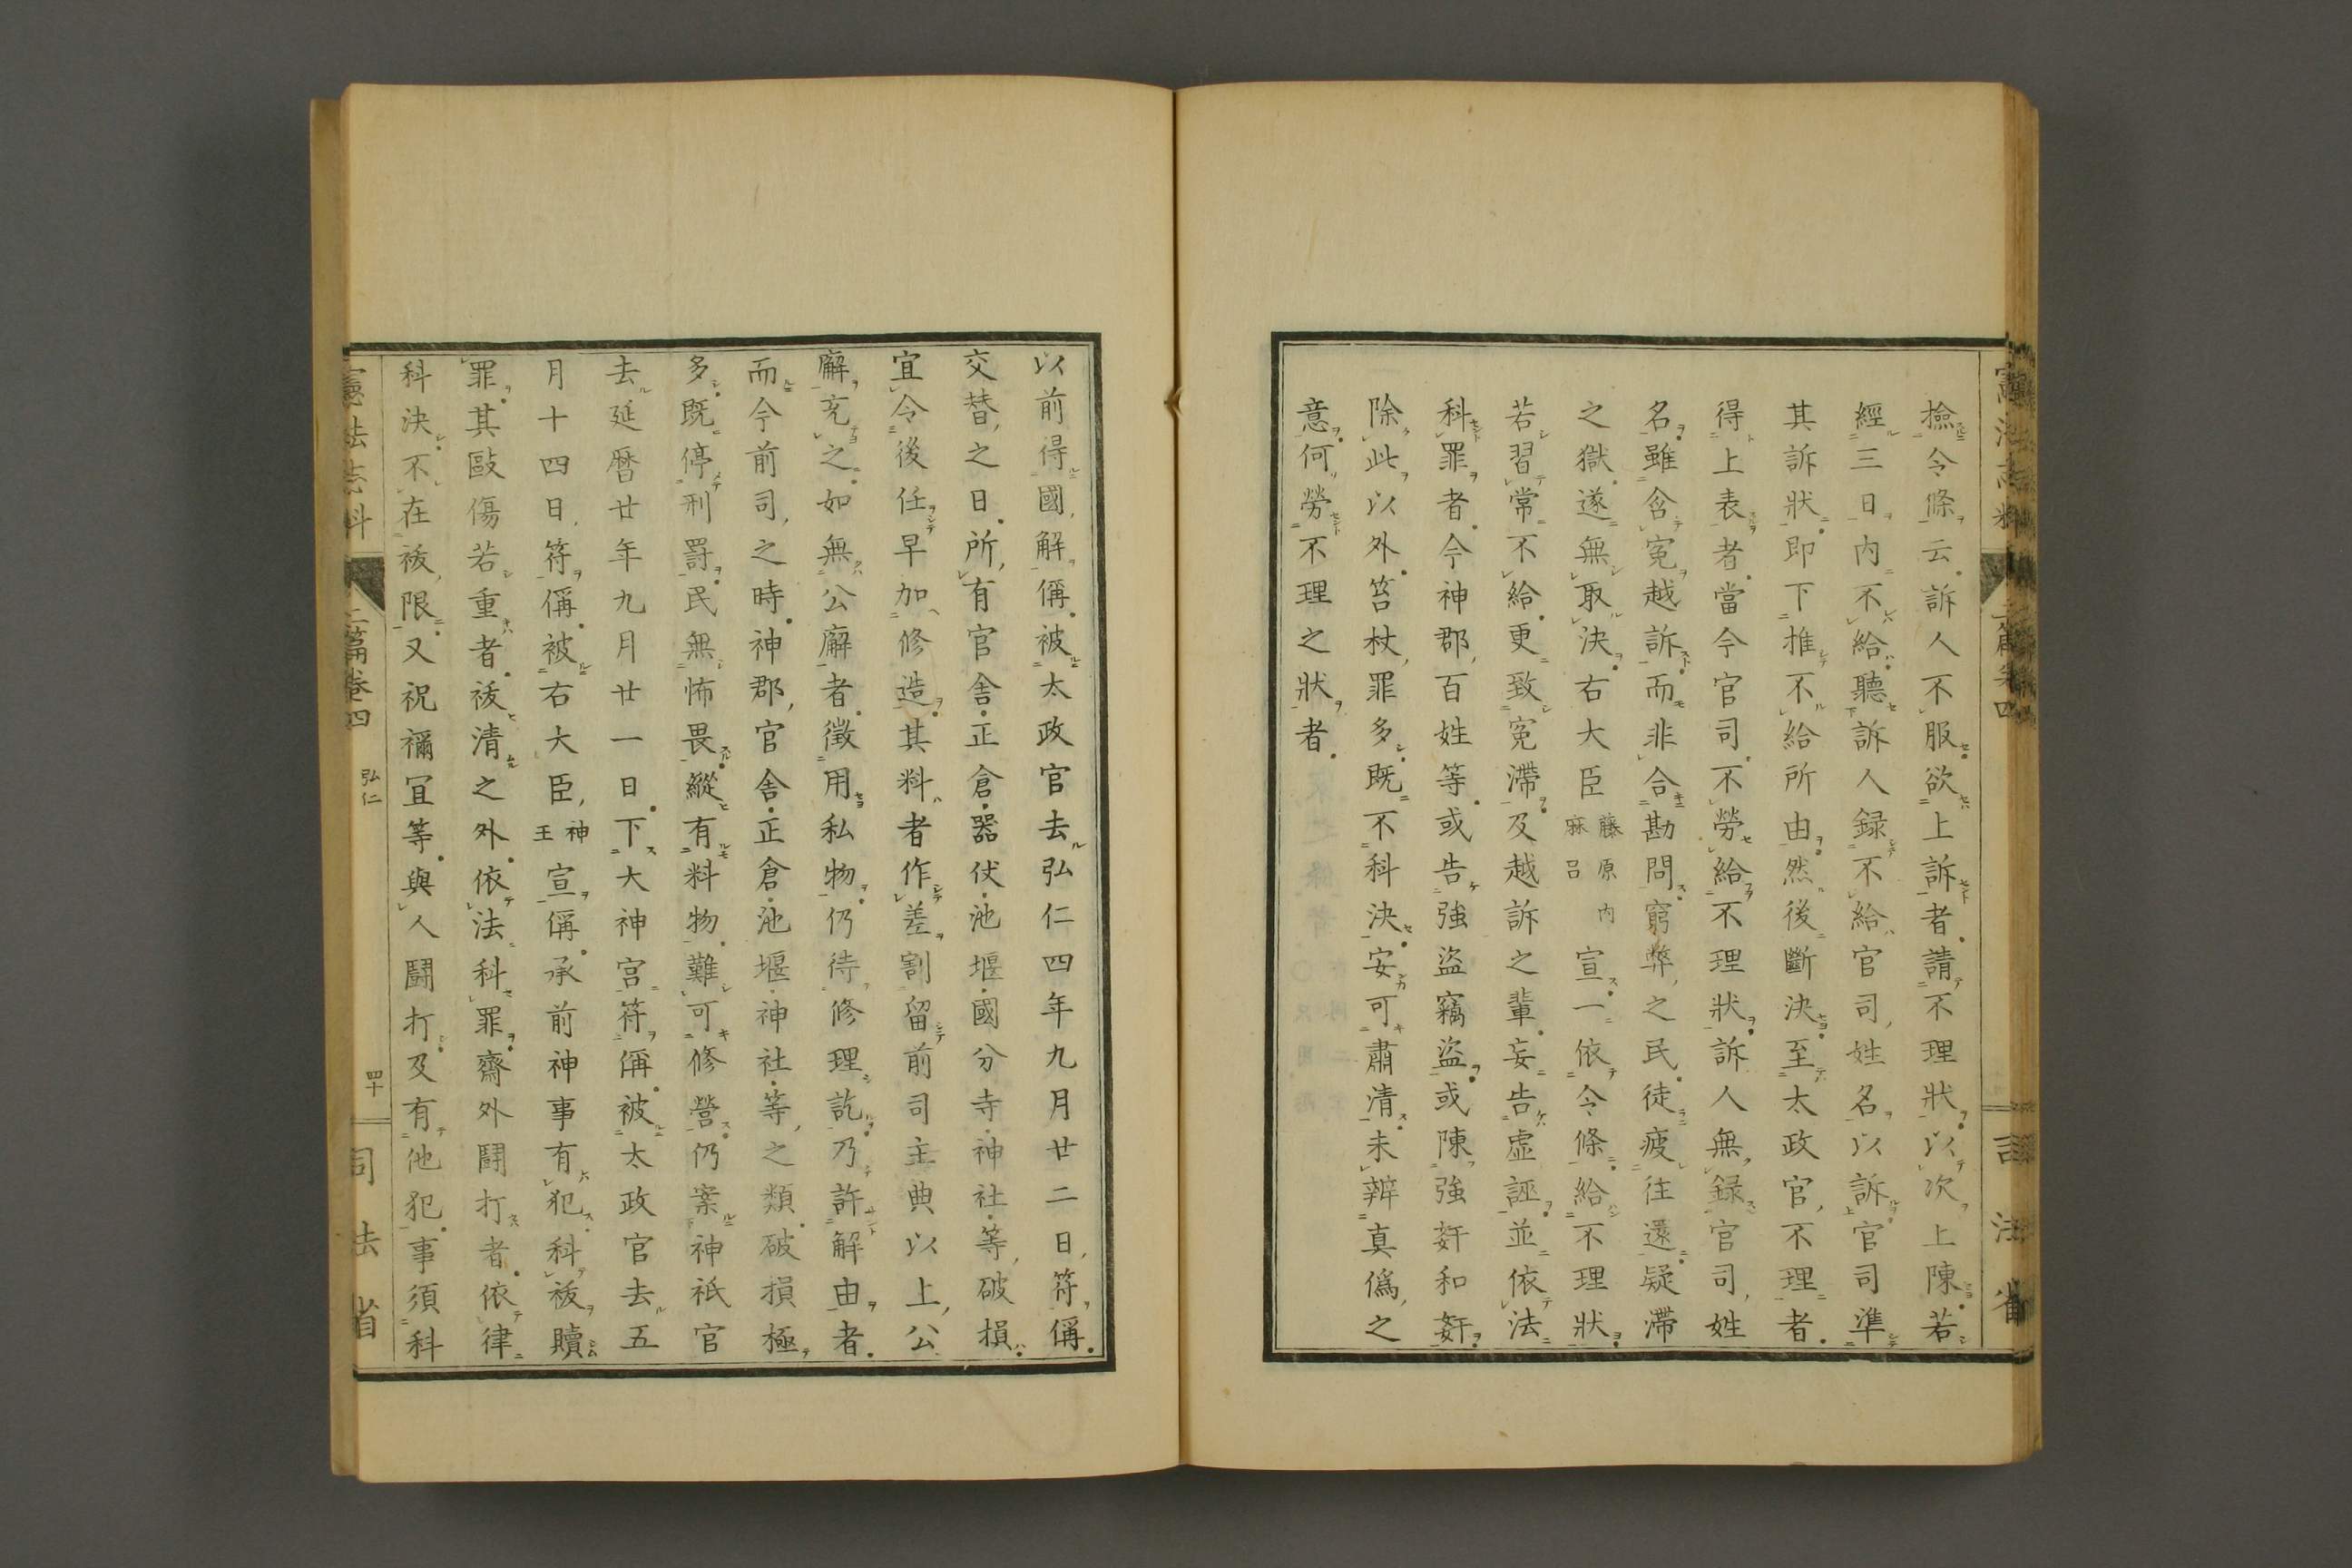 檢令條云訴人不服欲上訴者請不理狀以次上陳若
經三日内不給聽訴人録不給官司姓名以訴官司準
其訴狀即下推不給所由然後斷決至太政官不理者
得上表者當今官司不勞給不理狀訴人無録官司姓
名雖含寃越訴而非合勘問窮弊之民徒疲往還疑滯
之獄遂無取決右大臣藤原内麻呂宣一依令條給不理狀
若習常不給更致寃滯及越訴之輩妄告虚誣並依法
科罪者今神郡百姓等或告強盗竊盗或陳強奸和奸
除此以外笞杖罪多既不科決安可肅清未辨真偽之
意何勞不理之狀者
以前得國解偁被太政官去弘仁四年九月廿二日符偁
交替之日所有官舎正倉器仗池堰國分寺神社等破損
宜令後任早加修造其料者作差割留前司主典以上公
廨充之如無公廨者徴用私物仍待修理訖乃許解由者
而今前司之時神郡官舎正倉池堰神社等之類破損極
多既停刑罸民無怖畏縱有料物難可修營仍案神祇官
去延暦廿年九月廿一日下大神宮符偁被太政官去五
月十四日符偁被右大臣神王宣偁承前神事有犯科祓贖
罪其毆傷若重者祓清之外依法科罪齋外鬪打者依律
科決不在祓限又祝禰宜等與人鬪打及有他犯事須科
憲法志料 二篇卷四 弘仁 四十 司法省